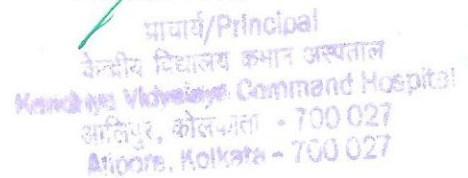 प्राचार्य/Principal
केन्द्रीय विद्यालय कमान अस्पताल
Kendriya Vidyalaya Command Hospital
अलिपुर, कोलकाता - 700 027
Alipore, Kolkata - 700 027